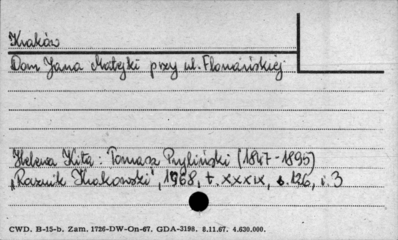 Kraków
Dom Jana Matejki przy ul. Floriańskiej
Helena Kita: Tomasz Pryliński (1847-1895)
„Rocznik Krakowski", 1968, t. XXXIX, s. 126, i. 3
CWD. B-15-b. Zam. 1726-DW-On-67. GDA-3198. 8.11.67. 4.630.000.